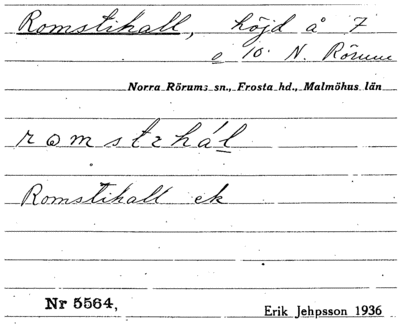 Romstikall, höjd å 7
o 10. N. Rörum
Norra Rörums sn., Frosta hd., Malmöhus län
romstɛhál
Romstikall ek
Nr 5564,
Erik Jehpsson 1936